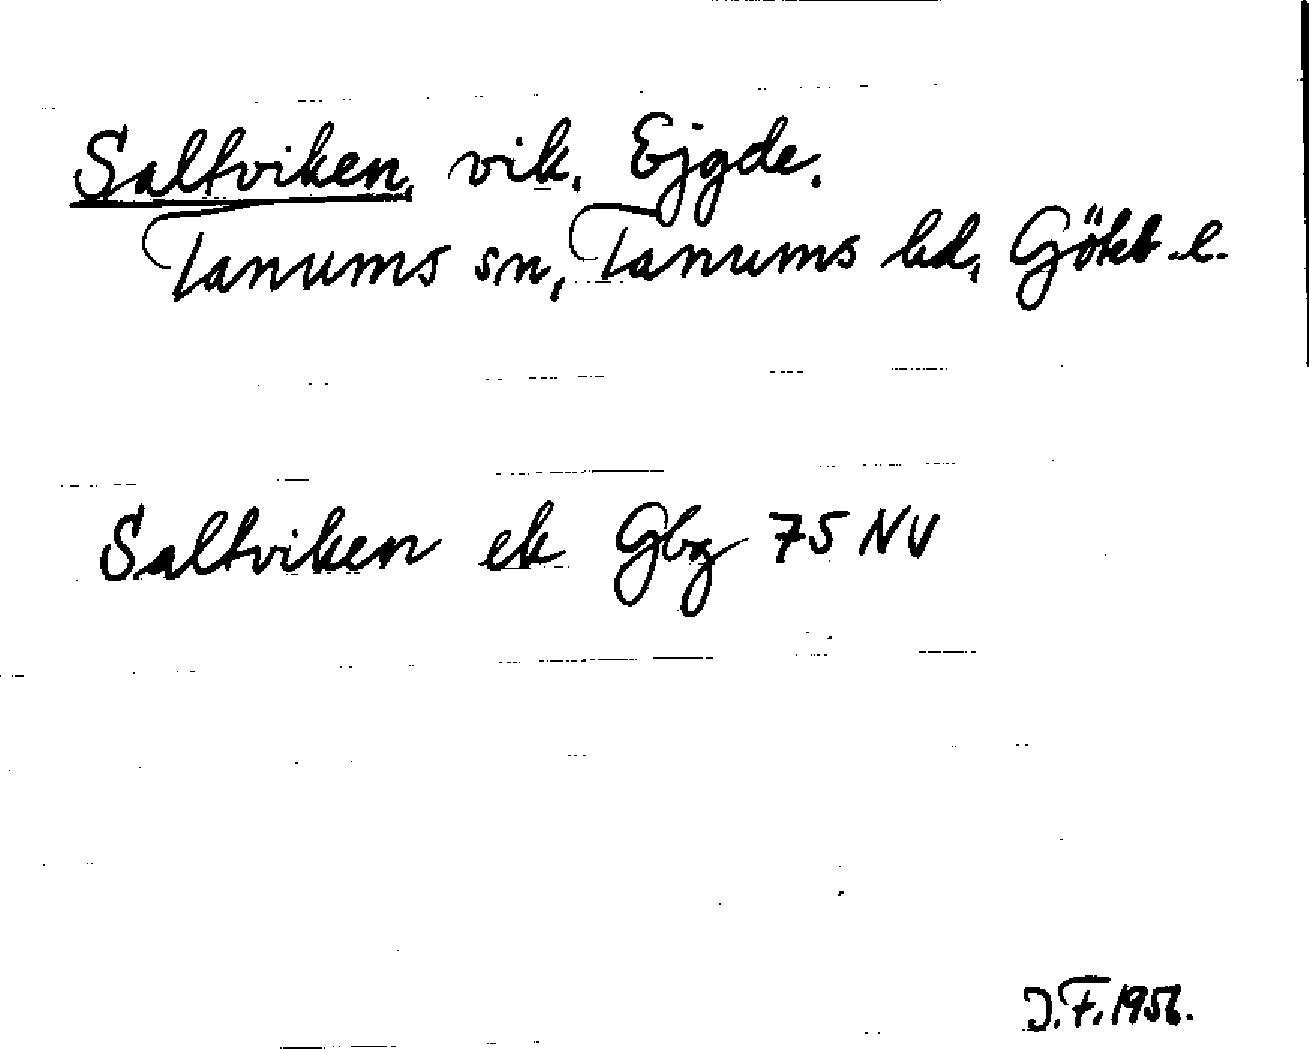 Saltviken, vik. Ejgde.
Tanums sn, Tanums hd, Gökb l.
Saltviken ek Gbg 75 NV
J.F. 1956.